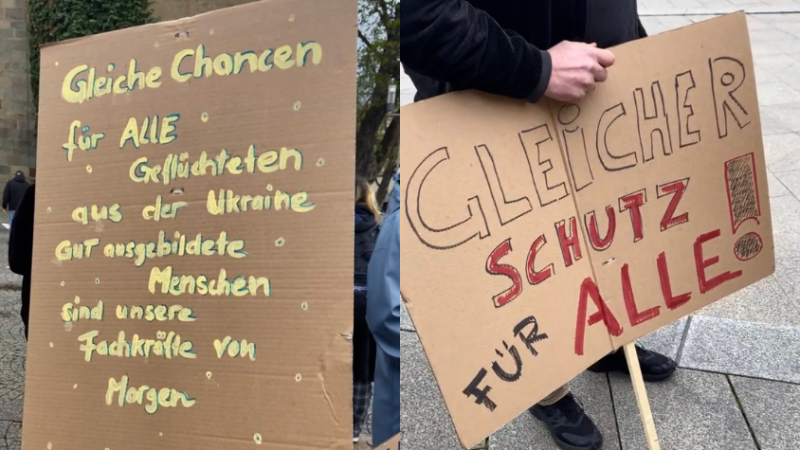 Gleiche Chancen
für ALLE
Geflüchteten
aus der Ukraine
GUT ausgebildete
Menschen
sind unsere
Fachkräfte von
Morgen
GLEiCHER
SCHUTZ
FÜR ALLE!